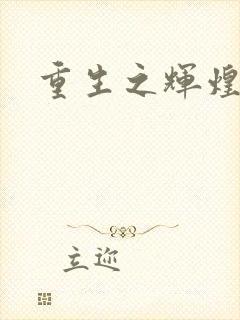 重生之辉煌
立迩